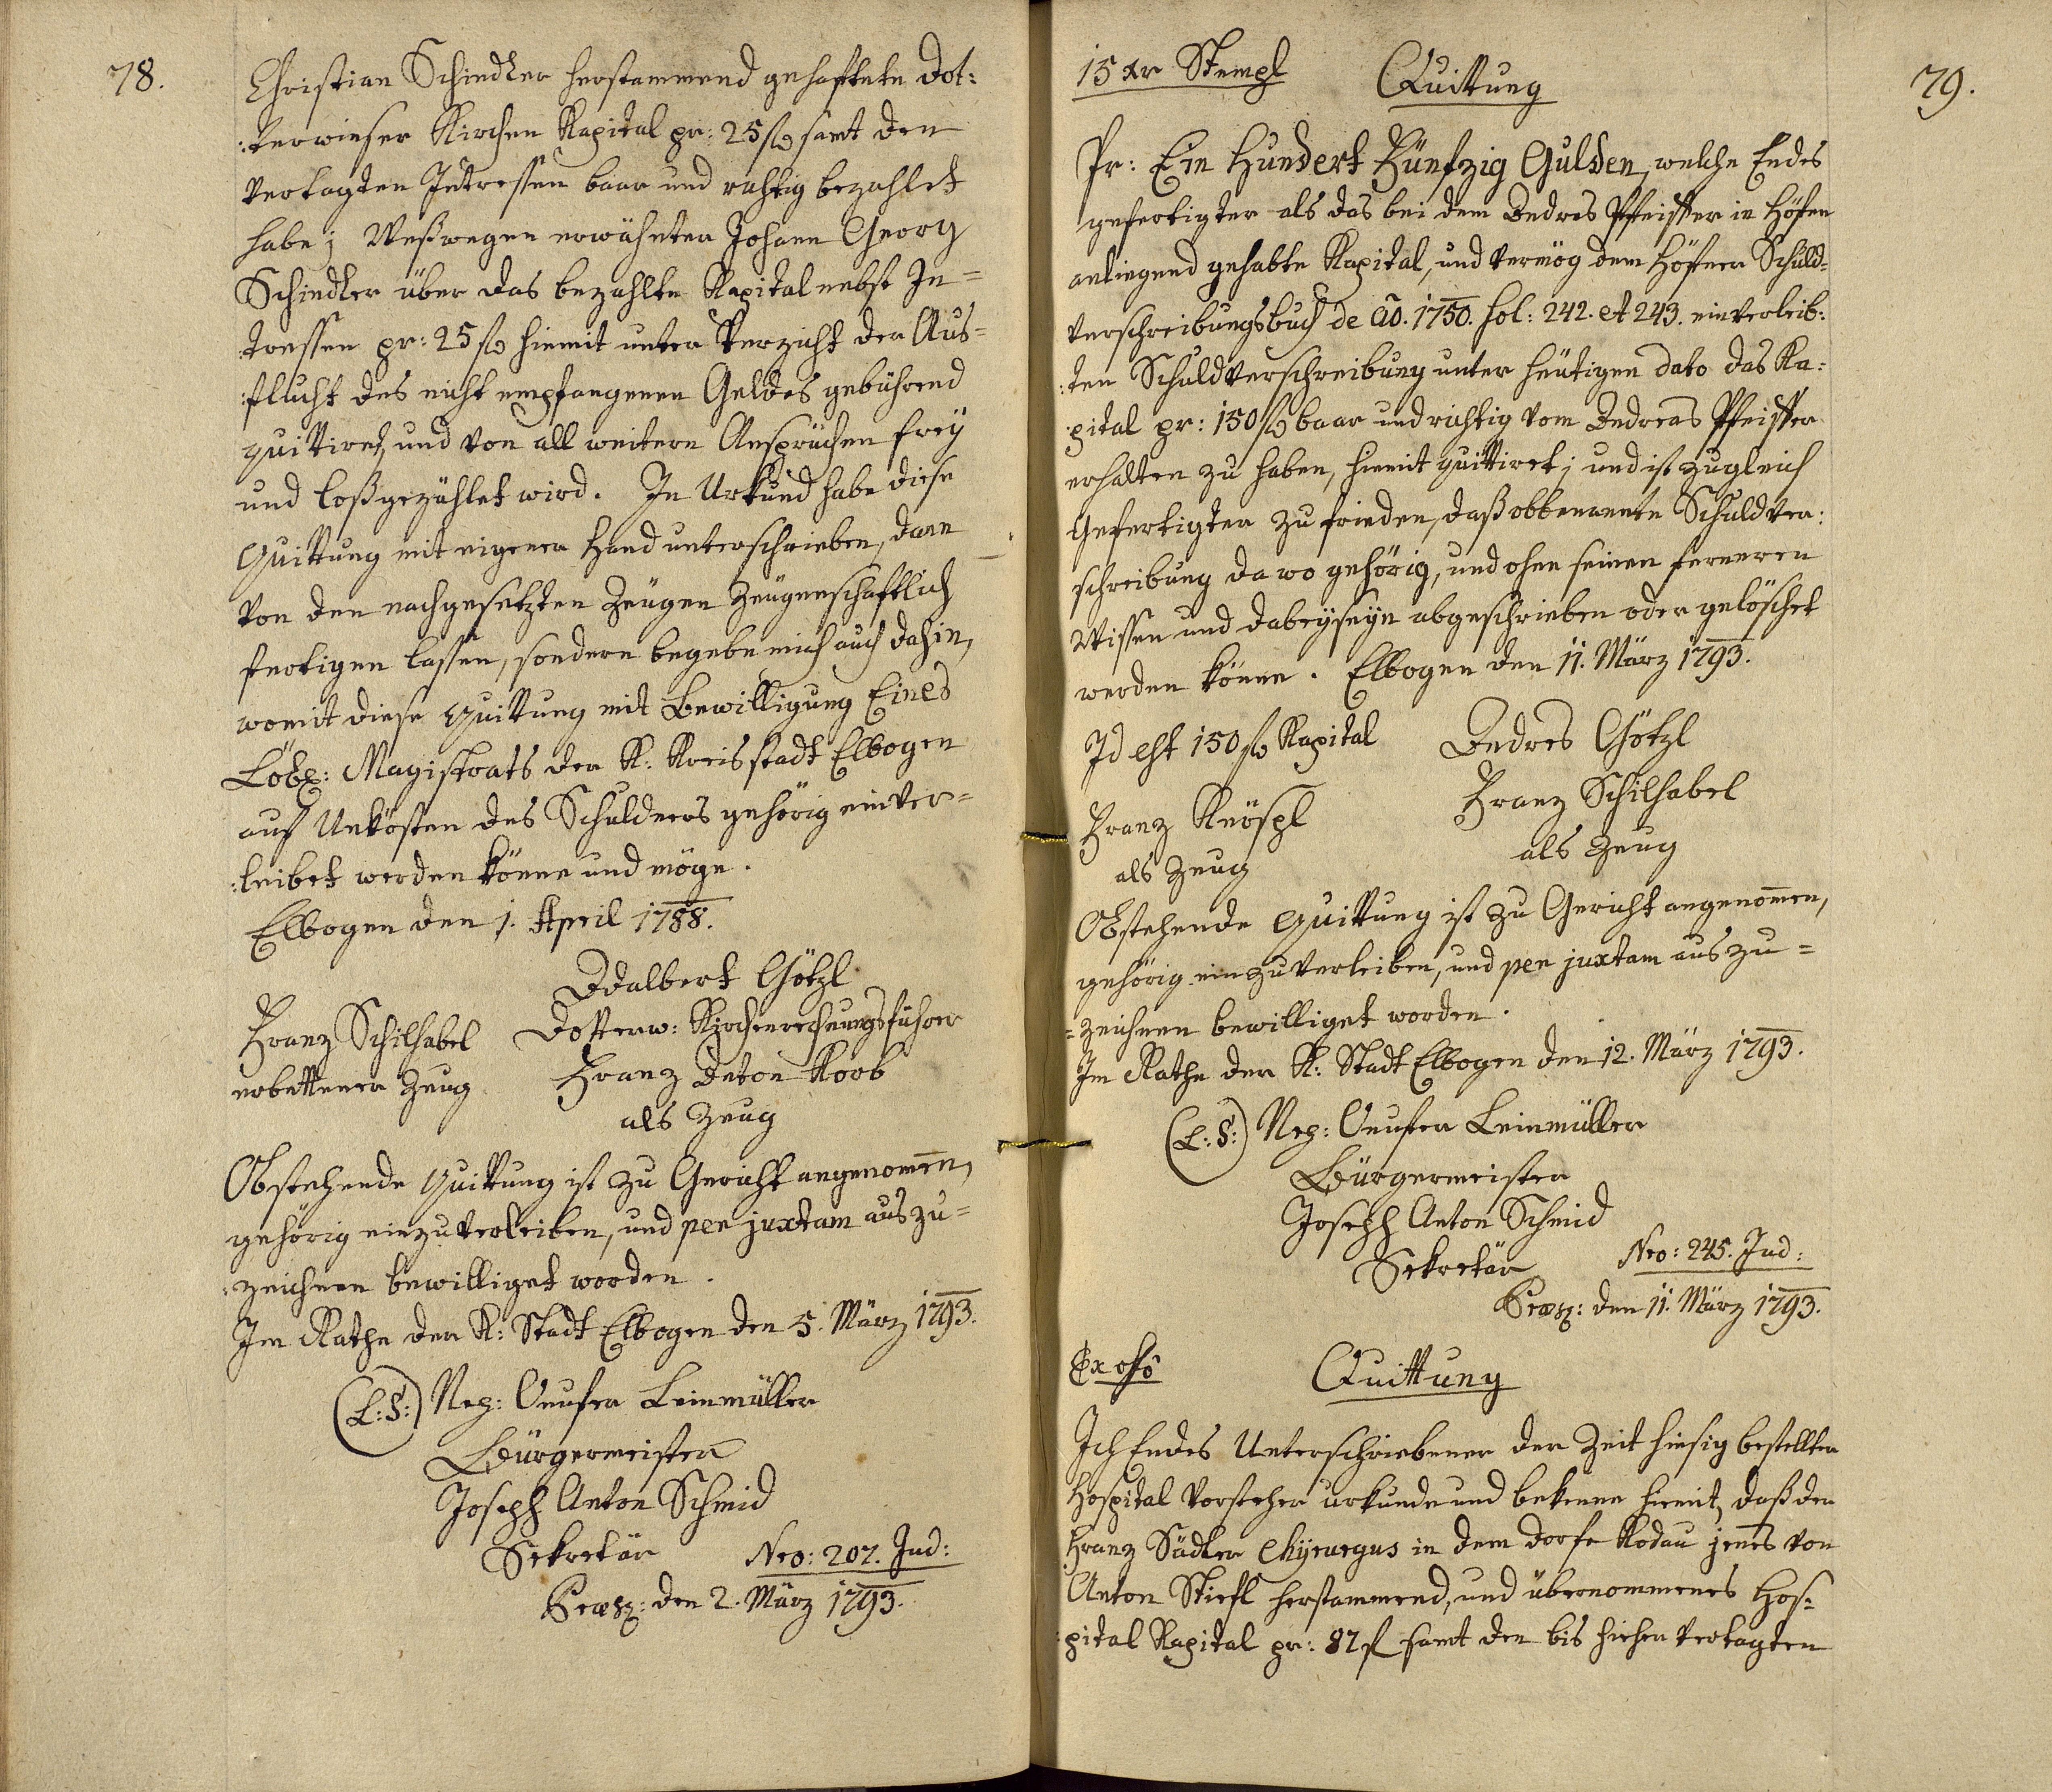 78.
Christian Schindler herstammend gehafftete Dot:
:terwieser Kirchen Kapital pr: 25 fl samt den
vertagten Intressen baar und richtig bezahlet
habe; Weßwegen erwähnter Johann Georg
Schindler über das bezahlte Kapital nebst In=
tressen pr: 25 fl hiemit unter Verzicht der Aus=
:flucht des nicht empfangenen Geldes gebührend
quittiret, und von all weitern Ansprüchen frey
und loßgezählet wird. In Urkund habe diese
Quittung mit eigener Hand unterschrieben, dann
von den nachgesetzten Zeugen Zeugenschaftlich
fertigen lassen, sondern begebe mich auch dahin,
womit diese Quittung mit Bewilligung Eines
Löbl: Magistrats der K: Kreisstadt Elbogen
auf Unkösten des Schuldners gehörig einver=
:leibet werden könne und möge.
Elbogen den 1. April 1788.
Adalbert Götzl
Franz Schilhabel Dotterw: Kirchenrechnungsführer
erbettener Zeug Franz Anton Korb
als Zeug
Obstehende Quittung ist zu Gericht angenom̄en,
gehörig einzuverleiben, und per juxtam auszu=
:zeichnen bewilliget worden.
Im Rathe der K: Stadt Elbogen den 5. März 1793.
(L:S:) Nep: Onufer Leinmüller
Bürgermeister
Joseph Anton Schmid
Sekretär Nro: 207. Jud:
Præs: den 2. März 1793.
79.
15 xr Stempl Quittung
Pr: Ein Hundert Fünfzig Gulden, welche Endes
gefertigter als das bei dem Andres Pfeiffer in Höfen
anliegend gehabte Kapital, und vermög dem Höfner Schuld=
verschreibungsbuch de aõ. 1750. fol: 242. et 243. einverleib:
:ten Schuldverschreibung unter heutigen dato das Ka:
:pital pr: 150 fl baar und richtig vom Andreas Pfeiffer
erhalten zu haben, hiemit quittiret; und ist zugleich
Gefertigter zu frieden, daß obbenannte Schuldver:
schreibung da wo gehörig, und ohne seinen ferneren
Wissen und dabeyseyn abgeschrieben oder gelöschet
werden könne. Elbogen den 11. März 1793.
Id est 150 fl Kapital Andres Götzl
Franz Knöspl Franz Schilhabel
als Zeug als Zeug
Obstehende Quittung ist zu Gericht angenom̄en,
gehörig einzuverleiben, und per juxtam auszu=
=zeichnen bewilliget worden.
Im Rathe der K: Stadt Elbogen den 12. März 1793.
(L:S:) Nep: Onufer Leinmüller
Bürgermeister
Joseph Anton Schmid
Sekretär Nro: 245. Jud:
Præs: den 11. März 1793.
Ex offo Quittung
Ich Endes Unterschriebener der Zeit hiesig bestellter
Hospital Vorsteher urkunde und bekenne hiemit, daß der
Franz Sadler Chyrurgus in dem Dorfe Kodau jenes von
Anton Stiefl herstammend, und übernommenes Hos=
:pital Kapital pr: 87 fl samt den bis hieher vertagten